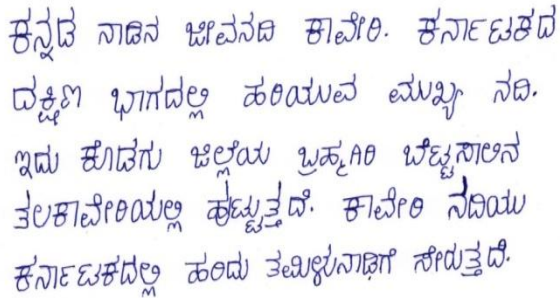 ಕನ್ನಡ ನಾಡಿನ ಜೀವನದಿ ಕಾವೇರಿ. ಕರ್ನಾಟಕದ
ದಕ್ಷಿಣ ಭಾಗದಲ್ಲಿ ಹರಿಯುವ ಮುಖ್ಯ ನದಿ.
ಇದು ಕೊಡಗು ಜಿಲ್ಲೆಯ ಬ್ರಹ್ಮಗಿರಿ ಬೆಟ್ಟಸಾಲಿನ
ತಲಕಾವೇರಿಯಲ್ಲಿ ಹುಟ್ಟುತ್ತದೆ. ಕಾವೇರಿ ನದಿಯು
ಕರ್ನಾಟಕದಲ್ಲಿ ಹರಿದು ತಮಿಳುನಾಡಿಗೆ ಸೇರುತ್ತದೆ.